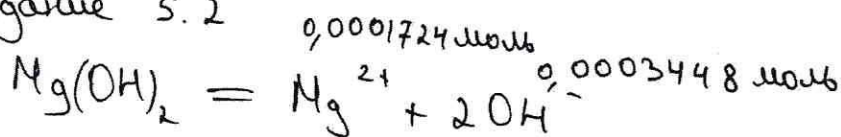 дание 5.2
0,0001724 моль
0,0003448 моль
Mg(OH)₂ = Mg²⁺ + 2OH⁻